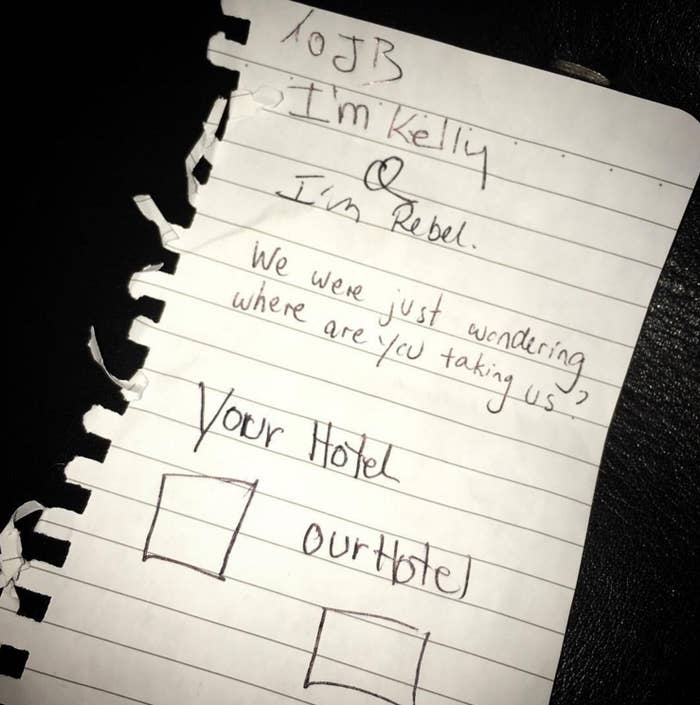 To JB
I'm Kelly
&
I'm Rebel.
We were just wondering
where are you taking us?
Your Hotel
Our Hotel